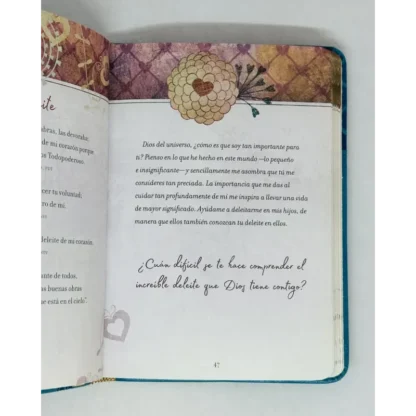 ite
bras, las devoraba:
de mi corazón, porque
Todopoderoso.
er tu voluntad;
ro de mí.
deleite de mi corazón.
ante de todos,
s buenas obras
e está en el cielo".
Dios del universo, ¿cómo es que soy tan importante para
ti? Pienso en lo que he hecho en este mundo —lo pequeño
e insignificante— y sencillamente me asombra que tú me
consideres tan preciada. La importancia que me das al
cuidar tan profundamente de mí me inspira a llevar una vida
de mayor significado. Ayúdame a deleitarme en mis hijos, de
manera que ellos también conozcan tu deleite en ellos.
¿Cuán difícil se te hace comprender el
increíble deleite que Dios tiene contigo?